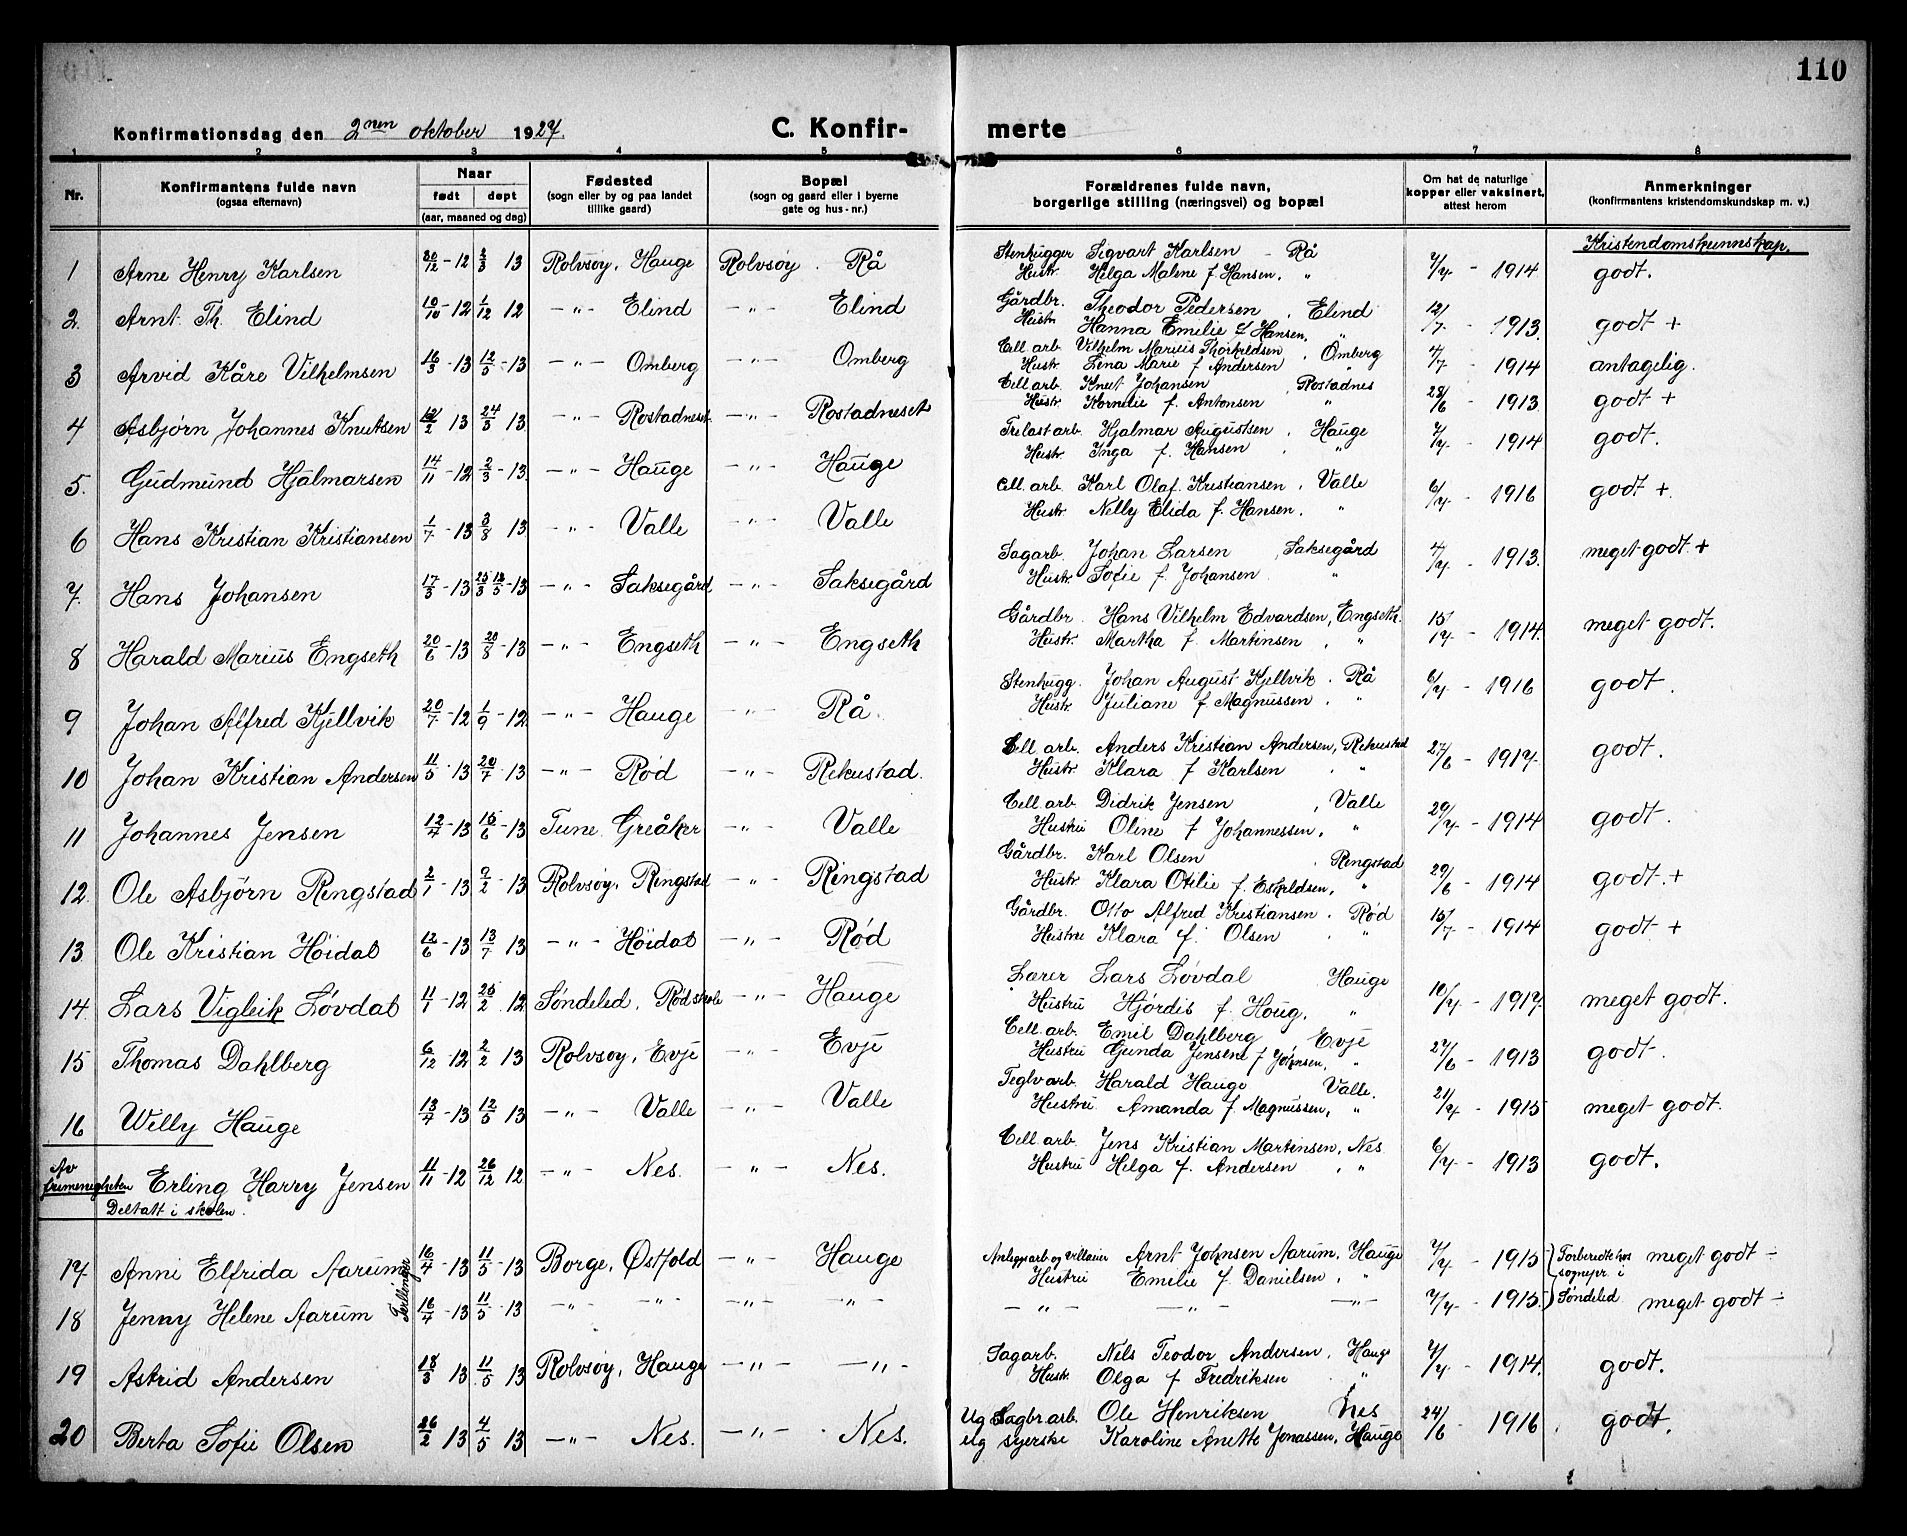 110
Konfirmationsdag den 2nen oktober 1927. C. Konfir- merte
1 2 3 4 5 6 7 8
Nr. Konfirmantens fulde navn (ogsaa efternavn) Naar født døpt (aar, maaned og dag) Fødested (sogn eller by og paa landet tillike gaard) Bopæl (sogn og gaard eller i byerne gate og hus-nr.) Forældrenes fulde navn, borgerlige stilling (næringsvei) og bopæl Om hat de naturlige kopper eller vaksinert, attest herom Anmerkninger (konfirmantens kristendomskundskap m. v.)
Kristendomskunnskap.
1 Arne Henry Karlsen 20/12-12 2/3 13 Rolvsøy, Hauge Rolvsøy. Rå Stenhugger Sigvart Karlsen - Rå 7/7 - 1914 godt.
Hustr. Helga Malene f. Hansen, "
2. Arnt Th. Elind 10/10-12 1/12 12 -"- Elind -"- Elind Gårdbr. Theodor Pedersen, Elind 12/7 - 1913 godt +
Hustr Hanna Emilie f. Hansen, "
3 Arvid Kåre Vilhelmsen 16/3-13 12/5-13 -"- Omberg -"- Omberg Cell. arb. Vilhelm Marius Thorkildsen, Omberg 4/7 - 1914 antagelig.
Hustr. Lena Marie f Andersen "
4 Asbjørn Johannes Knutsen 12/2 13 24/5 13 -"- Rostadneset -"- Rostadneset Cell arb. Knut Johansen, Rostadnes 28/6 - 1913 godt +
Hustr. Kornelie f. Antonsen "
5. Gudmund Hjalmarsen 14/11-12 2/3-13 -"- Hauge -"- Hauge Trelast arb. Hjalmar Augustsen, Hauge 7/7 - 1914 godt.
Hustr. Inga f. Hansen "
6 Hans Kristian Kristiansen 1/7-13 3/8 13 -"- Valle -"- Valle Cell. arb. Karl Olaf Kristiansen, Valle 6/7 - 1916 godt +.
Hustr. Nelly Elida f. Hansen, "
7. Hans Johansen 17/3-13 25/3 12/5-13 -"- Saksegård -"- Saksegård Sagarb. Johan Larsen, Saksegård 4/7 - 1913 meget godt +
Hustr. Sofie f. Johansen "
8 Harald Marius Engseth 20/6-13 20/8-13 -"- Engseth -"- Engseth Gårdbr. Hans Vilhelm Edvardsen, Engseth. 15/17 - 1914 meget godt.
Hustr. Martha f. Martinsen, "
9 Johan Alfred Kjellvik 20/7-12 1/9-12 -"- Hauge -"- Rå. Stenhugg. Johan August Kjellvik. Rå 6/7 - 1916 godt.
Hustr. Juliane f Magnussen. "
10 Johan Kristian Andersen 11/5-13 20/7-13 -"- Rød -"- Rekustad. Cell. arb. Anders Kristian Andersen, Rekustad 27/6 - 1917. godt.
Hustr. Klara f Karlsen "
11 Johannes Jensen 12/4-13 15/6-13 Tune Greåker -"- Valle Cell. arb. Didrik Jensen, Valle 29/7 - 1914 godt.
Hustru Oline f Johannessen, "
12. Ole Asbjørn Ringstad 2/1-13 9/2-13 Rolvsøy, Ringstad -"- Ringstad Gårdbr. Karl Olsen Ringstad 29/6 - 1914 godt.+
Hustr Klara Otilie f. Eskildsen, "
13. Ole Kristian Høidal 12/6-13 13/7 13 -"- Høidal -"- Rød Gårdbr. Otto Alfred Kristiansen. Rød 15/7 - 1914 godt +
Hustru Klara f. Olsen "
14. Lars Vigleik Løvdal 11/7-12 25/2 12 Søndeled, Rødskole -"- Hauge Lærer Lars Løvdal Hauge 10/7 - 1917. meget godt.
Hustru Hjørdis f. Houg, "
15 Thomas Dahlberg 6/12-12 2/2 13 Rolvsøy, Evje -"- Evje Cell. arb. Emil Dahlberg Evje 27/6 - 1913 godt.
Hustru Gunda Jensene f Johnsen, "
16 Willy Hauge 13/4-13 12/5 13 -"- Valle -"- Valle Teglv arb. Harald Hauge Valle. 21/7 - 1915 meget godt.
Hustru Amanda f. Magnussen, "
Av frimenigheten Erling Harry Jensen 11/11-12 26/12 12 -"- Nes. -"- Nes. Cell. arb. Jens Kristian Martinsen, Nes 6/7 - 1913 godt.
Deltatt i skolen. Hustru Helga f. Andersen, "
17. Anni Elfrida Aarum 16/4-13 11/5-13 Borge, Østfold -"- Hauge Anleggsarb og villaeier Arnt Johnsen Aarum, Hauge 7/7 - 1915 Forberedt hos sognepr. i meget godt -
Tvillinger Hustru Emelie f. Danielsen, "
18 Jenny Helene Aarum 16/4-13 11/5 13 -"- -"- -"- -"- -"- -"- -"- 7/7 - 1915. Søndeled meget godt -
19 Astrid Andersen 18/3 13 11/5 13 Rolvsøy, Hauge -"- -"- Sagarb. Nils Teodor Andersen, Hauge 7/7 - 1914. godt.
Hustr. Olga f Fredriksen "
20 Berta Sofie Olsen 26/2 13 4/5 13 -"- Nes. -"- Nes. Ug Sagbr. arb. Ole Henriksen Nes 24/6 - 1916 godt.
Ug syerske Karoline Anette Jonassen, Hauge